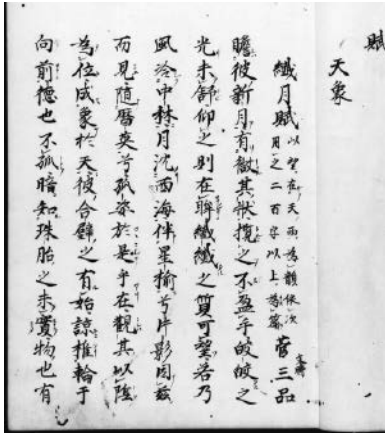 賦
天象
纖月賦 以望在天西為韻依次用之二百字以上為篇 菅三品 文時
瞻彼新月有徴其状攬之不盈手皎皎之
光未舒仰之則在眸纖纖之質可望若乃
風冷中林月沈西海伴星榆兮片影因茲
而見隨曆莢兮孤姿於是乎在觀其以陰
為位成象於天彼合璧之有始諒推輪于
向前德也不孤暗知珠胎之未實物也有